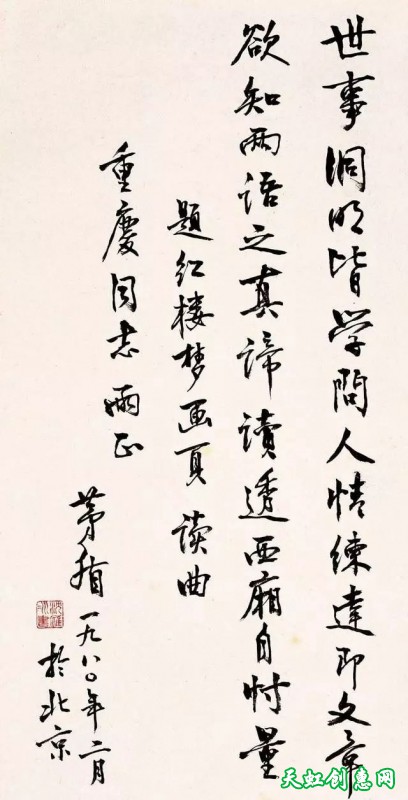 世事洞明皆学問人情練達即文章
欲知两语之真諦讀透西廂自忖量
題红楼梦画頁 读曲
重慶同志 正
茅盾 一九八〇年二月
於北京
天虹创惠网